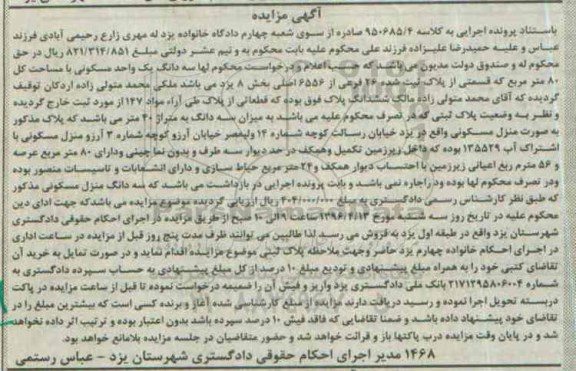 آگهی مزایده
باستناد پرونده اجرایی به کلاسه ۹۵۰۶۸۵/۴ صادره از سوی شعبه چهارم دادگاه خانواده یزد له مهری زارع رحیمی آبادی فرزند
عباس و علیه حمیدرضا علیزاده فرزند علی محکوم علیه بابت محکوم به و نیم عشر دولتی مبلغ ۸۳۱/۳۱۴/۸۵۱ ریال در حق
محکوم له و صندوق دولت مدیون می باشد که حسب اعلام و درخواست محکوم لها سه دانگ یک واحد مسکونی با مساحت کل
۸۰ متر مربع که قسمتی از پلاک ثبت شده ۲۶ فرعی از ۶۵۵۶ اصلی بخش ۸ یزد می باشد ملکی محمد متولی زاده اردکان توقیف
گردیده که آقای محمد متولی زاده مالک ششدانگ پلاک فوق بوده که قطعاتی از پلاک طی آراء مواد ۱۴۷ از مورد ثبت خارج گردیده
و نظر به وضعیت پلاک ثبتی که در تصرف محکوم علیه می باشد به میزان سه دانگ به متراژ ۴۰ متر می باشد که پلاک مذکور
به صورت منزل مسکونی واقع در یزد خیابان رسالت کوچه شماره ۱۴ ولیعصر خیابان آرزو کوچه شماره ۳ آرزو منزل مسکونی با
اشتراک آب ۱۳۵۵۲۹ بوده که داخل زیرزمین تکمیل وهمکف در حد دیوار سه طرف و بدون نما چینی ودارای ۸۰ متر مربع عرصه
و ۵۶ مترم ربع اعیانی زیرزمین با احتساب دیوار همکف و۲۴ متر مربع حیاط سازی و دارای انشعابات و تاسیسات منصور بوده
ودر تصرف محکوم لها بوده ودراجاره نمی باشد و بابت پرونده اجرایی در بازداشت می باشد که سه دانگ منزل مسکونی مذکور
که طبق نظر کارشناس رسمی دادگستری به مبلغ ۴۰۴/۰۰۰/۰۰۰ ریال ارزیابی گردیده موضوع مزایده می باشدکه جهت ادای دین
محکوم علیه در تاریخ روز سه شنبه مورخ ۱۳۹۶/۴/۱۳ ساعت ۹ الی ۱۰ صبح از طریق مزایده در اجرای احکام حقوقی دادگستری
شهرستان یزد واقع در طبقه اول یزد به فروش می رسد لذا طالبین می توانند ظرف مدت پنج روز قبل از مزایده در ساعت اداری
در اجرای احکام خانواده چهارم یزد حاضر وجهت ملاحظه پلاک ثبتی موضوع مزایده اقدام نماید و در صورت تمایل به خرید آن
تقاضای کتبی خود را به همراه مبلغ پیشنهادی و تودیع مبلغ ۱۰ درصد از کل مبلغ پیشنهادی به حساب سپرده دادگستری به
شماره ۲۱۷۱۲۹۵۸۰۶۰۰۴ بانک ملی دادگستری یزد واریز و فیش آن را ضمیمه درخواست نموده تا قبل از ساعت مزایده در پاکت
دربسته تحویل اجرا نموده و رسید دریافت دارند مزایده از مبلغ کارشناسی شده آغاز و برنده کسی است که بیشترین مبلغ را در
تقاضای خود پیشنهاد داده باشد و ضمنا تقاضایی که فاقد فیش ۱۰ درصد سپرده باشد بدون اعتبار بوده و ترتیب اثر داده نخواهد
شد و در پایان وقت مزایده درب پاکتها باز و قرائت خواهد شد و حضور متقاضیان در جلسه مزایده بلامانع خواهد بود.
۱۴۶۸ مدیر اجرای احکام حقوقی دادگستری شهرستان یزد - عباس رستمی